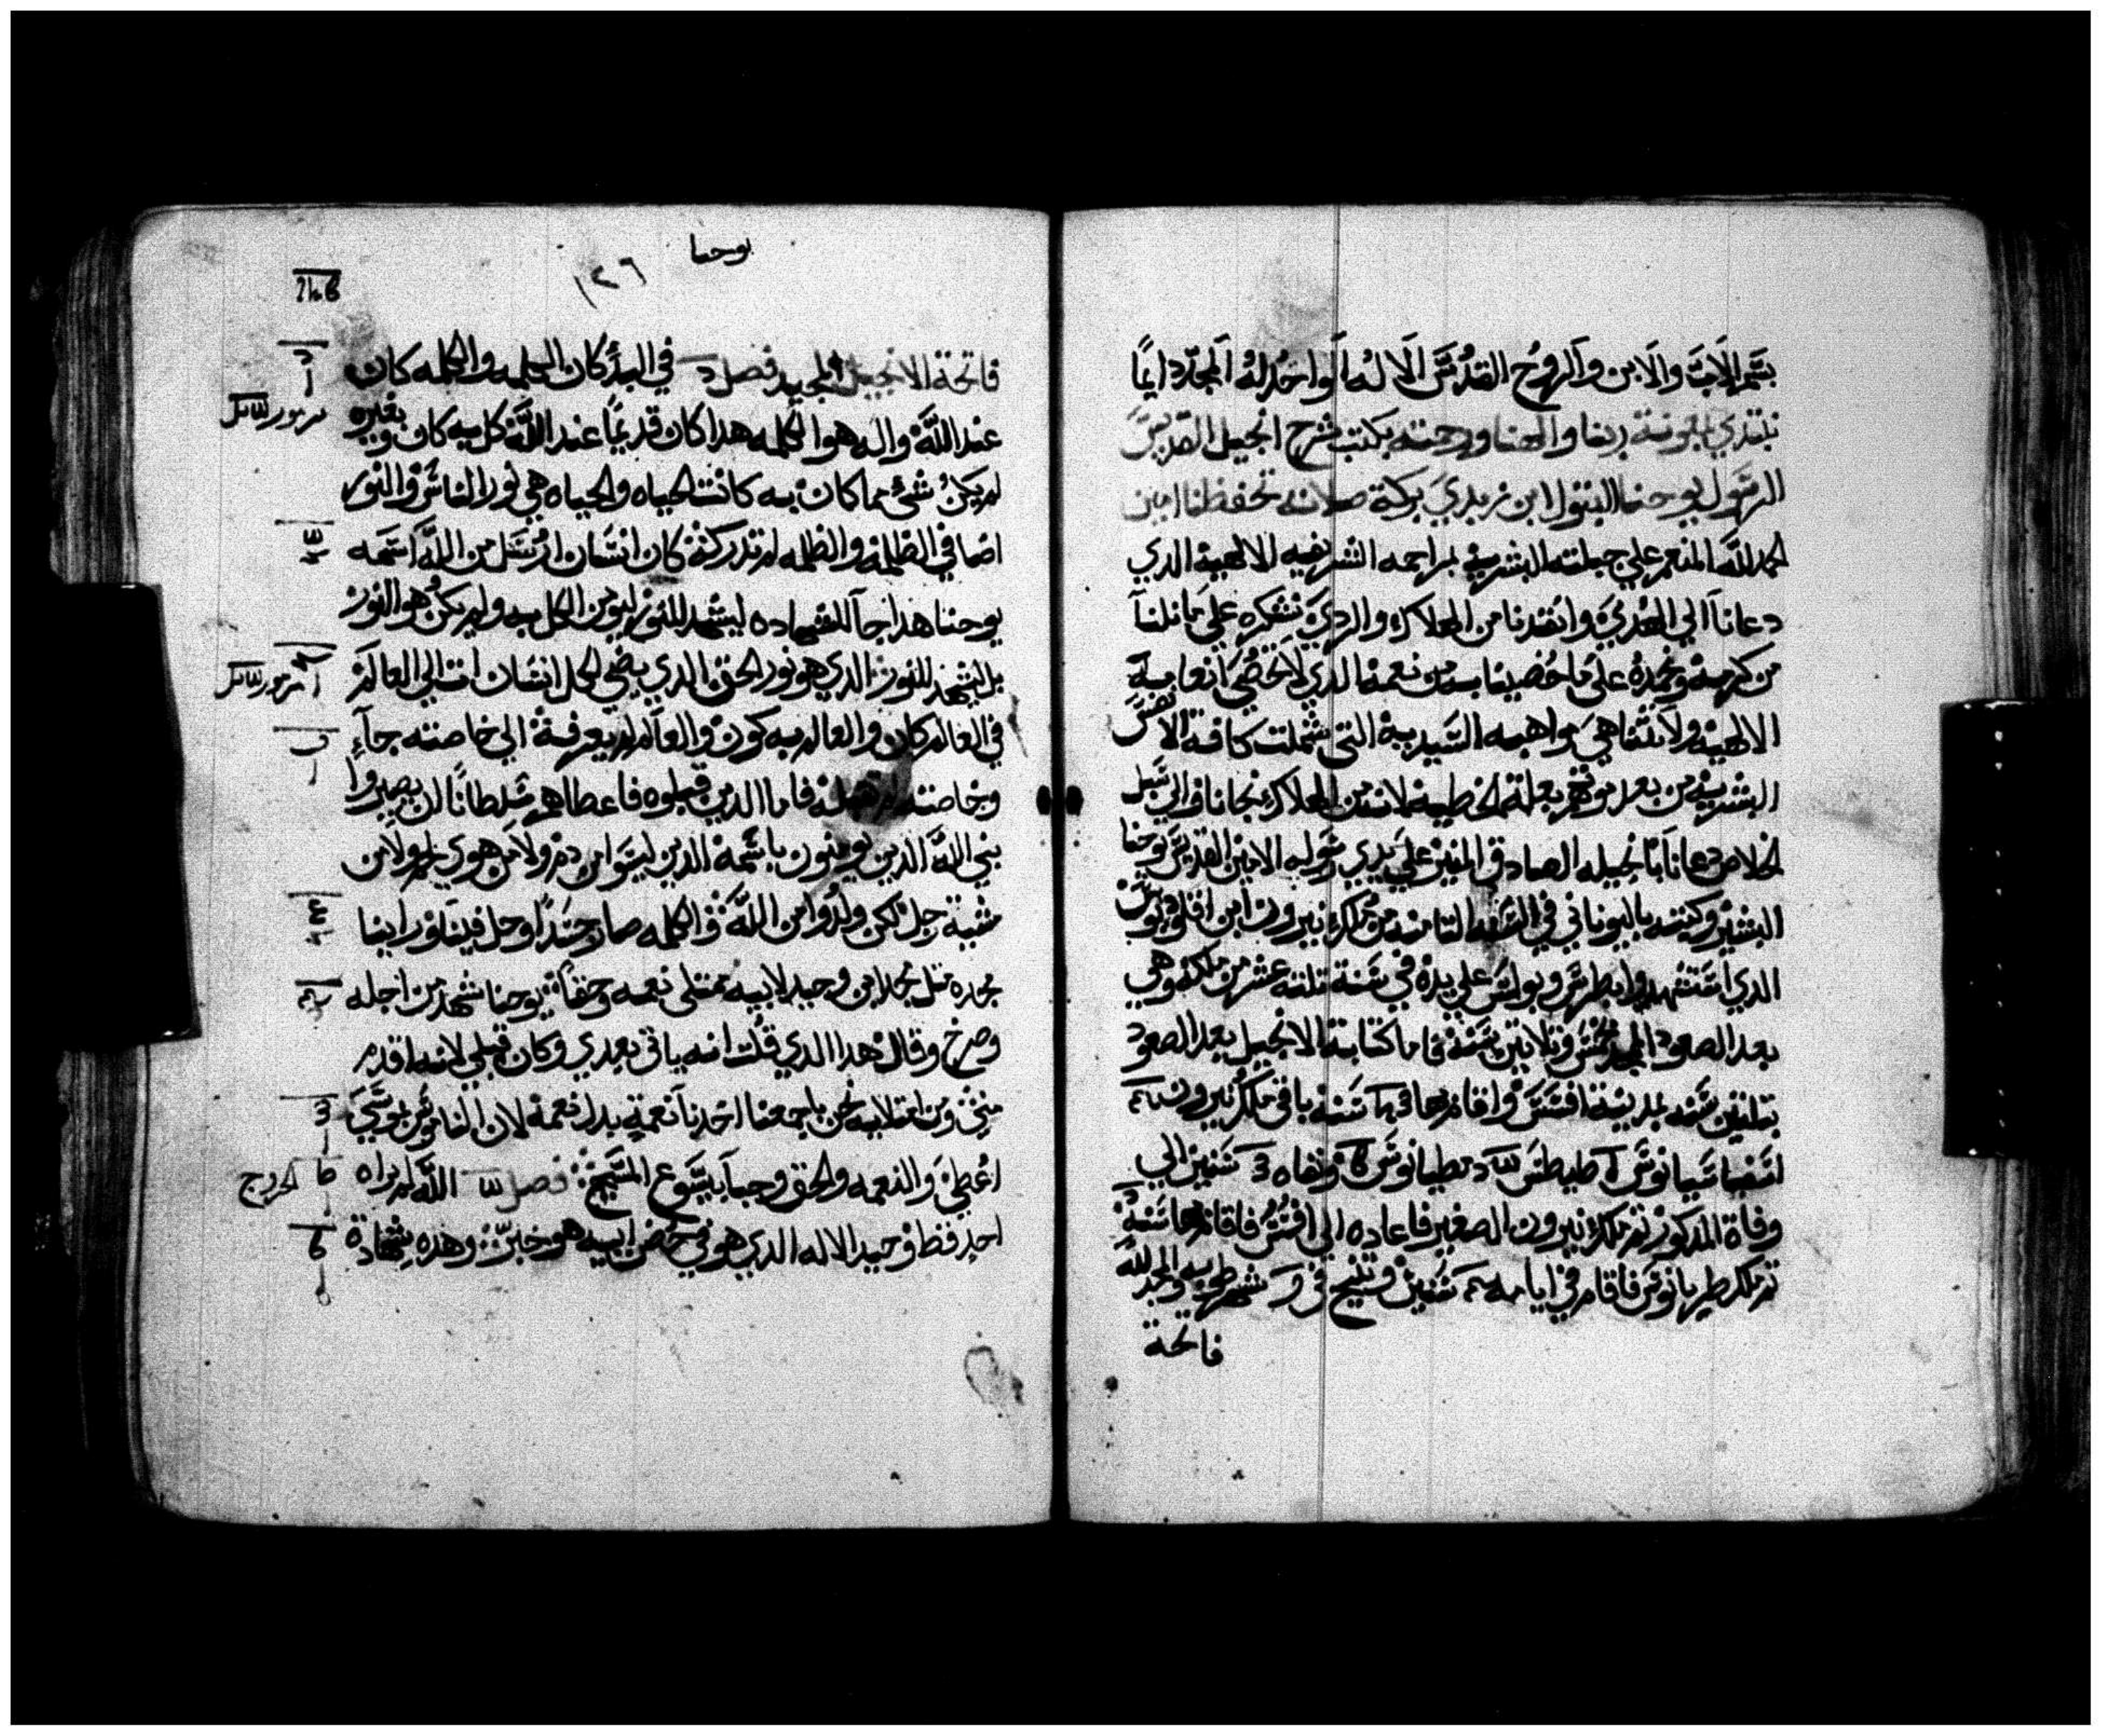 بسم الاب والابن والروح القدس الاله الواحد له المجد دايمًا
نبتدي بمعونة ربنا والهنا ورحمته بكتب شرح انجيل القديس
الرسول يوحنا البتول ابن زبدي بركة صلاته تحفظنا امين
الحمد لله المنعم علي جبلته البشرية بمراحمه الشريفيه الالهية الدي
دعانا الي الهدي وانقدنا من الهلاك والردي نشكره علي ما نلنا
من كرمه ونحمده علي ما خصينا به من نعمه الدي لا تحصي انعامه
الالهية ولا تتناهي مواهبه السيدية التي شملت كافة الانفس
البشرية من بعد موتهم بعلة الخطية لانه من الهلاك نجانا والي سبل
الخلاص دعانا بانجيله الصادق المنير علي يدي رسوله الامين القديس يوحنا
البشير وكتبه باليوناني في السنه التامنه من ملك نيرون ابن اقلوديوس
الدي استشهدوا بطرس وبولس علي يده في سنة تلتة عشر من ملكه وهي
بعد الصعود المجيد خمس وتلاتين سنة فاما كتابة الانجيل بعد الصعود
بتلتين سنه بمدينة افسس واقام بها سنه باقي ملك نيرون
اسفاسيانوس طيطس دمطيانوس ونفاه 3 سنين الي
وفاة المدكور تم ملك نيرون الصغير فاعاده الي افسس فاقام بها سنة
تم ملك طريانوس فاقام في ايامه سنين وتنيح في شهر طوبه والمجد لله
فاتحة
يوحنا
١٢٦
فاتحة الانجيل المجيد فصل في البدء كان الكلمه والكلمه كان
عند الله واله هو الكلمه هدا كان قديمًا عند الله كل به كان وبغيره
مزمور
لم يكن شئ مما كان به كانت الحياه والحياه هي نور الناس والنور
اضا في الظلمه والظلمه لم تدركه كان انسان ارسل من الله اسمه
يوحنا هدا جآ للشهاده ليشهد للنور ليومن الكل به ولم يكن هو النور
بل ليشهد للنور الدي هو نور الحق الدي يضي لكل انسان ات الي العالم
مزمور
في العالم كان والعالم به كون والعالم لم يعرفه الي خاصته جآء
وخاصته لم تقبله فاما الدين قبلوه فاعطاهم سلطانًا ان يصيروا
بني الله الدين يومنون باسمه الدين ليسوا من دم ولا من هوي لحم ولا من
مشية رجل لكن ولدوا من الله والكلمه صار جسدًا وحل فينا وراينا
مجده متل مجد ابن وحيد لابيه ممتلي نعمه وحقًا يوحنا شهد من اجله
وصرخ وقال هدا الدي قلت انه ياتي بعدي وكان قبلي لانه اقدم
مني ومن امتلايه نحن باجمعنا اخدنا نعمة بدل نعمة لان الناموس بموسي
اعطي والنعمه والحق وجبا بيسوع المسيح فصل الله لم يراه
الخروج
احد قط وحيد الاله الدي هو في حضن ابيه هو خبر وهده شهادة